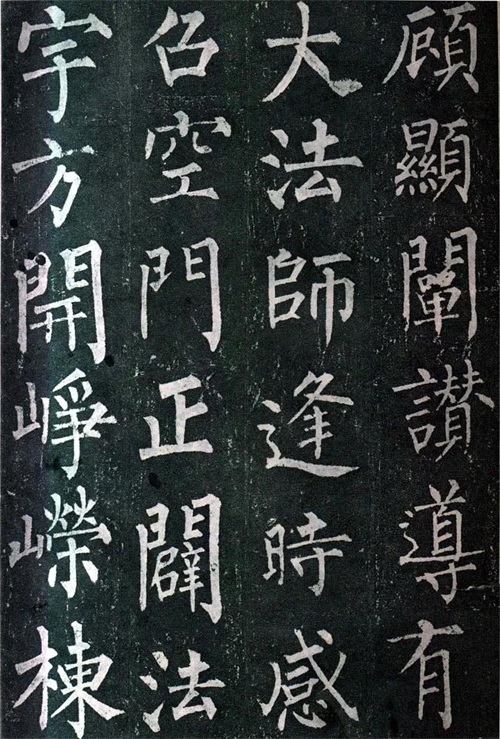 顧顯闡讚導有
大法師逢時感
召空門正闢法
宇方開崢嶸棟